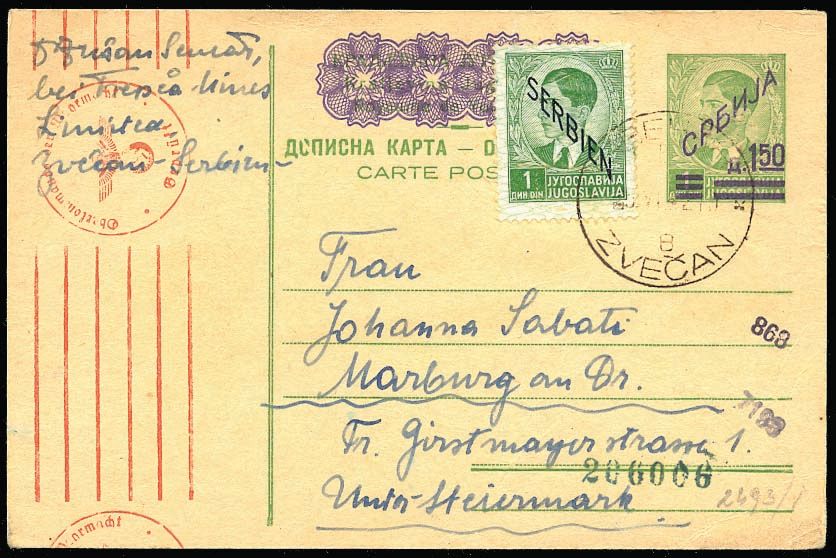 Dušan
bei Trepča Mines
Limited,
Zvečan - Serbien -
Oberkommando der Wehrmacht
Geprüft
e
ДОПИСНА КАРТА — D
CARTE POS
SERBIEN
1
ДИН DIN
ЈУГОСЛАВИЈА
JUGOSLAVIJA
СРБИЈА
Д. 1·50
ZVEČAN
8
Frau
Johanna Sabati
Marburg an Dr.
Fr. Girstmayerstrasse 1.
Unter Steiermark
868
7193
206006
2493/1
rmacht